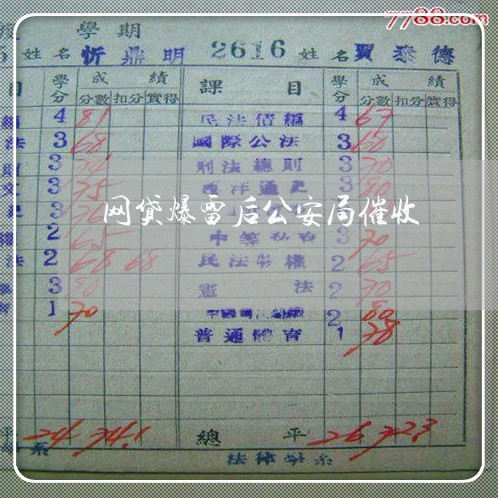 7788.com
學期
姓名 忻鼎明 2616 姓名 賈泰德
目 學分 成績 課目 學分 成績
分數 扣分 實得 分數 扣分 實得
4 81 民法債編 4 67
法 3 68 國際公法 3 60
3 刑法總則 3 70
3 75 西洋通史 3 80
网贷爆雷后公安局催收
2 65 3 70
法 2 68 68 民法物權 2 65
3 80 憲法 2 70
1 70 2 80
普通體育 1 78
平 24 74.1 總平 26 72.3
系 法律學系